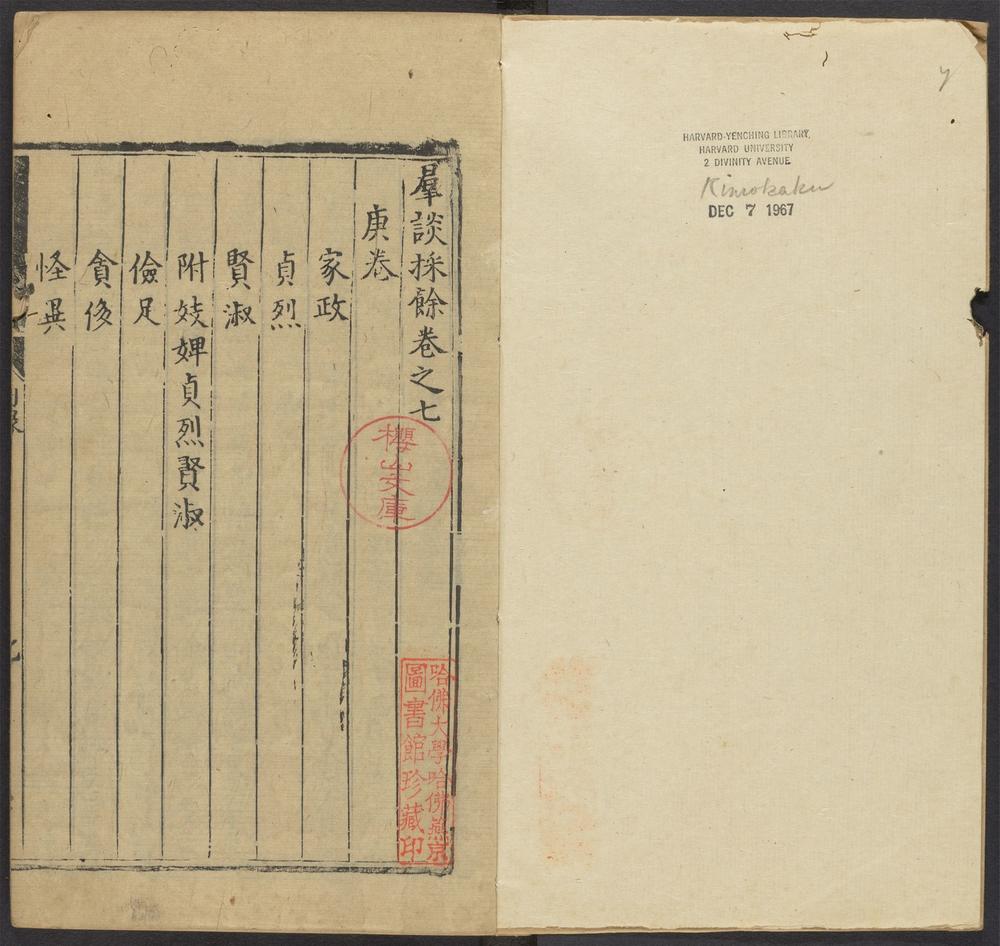 y
HARVARD-YENCHING LIBRARY,
HARVARD UNIVERSITY
2 DIVINITY AVENUE
Kinrokaku
DEC 7 1967
羣談採餘卷之七
庚卷
家政
貞烈
賢淑
附妓婢貞烈賢淑
儉足
貪侈
怪異
櫻山文庫
哈佛大學哈佛燕京
圖書館珍藏印